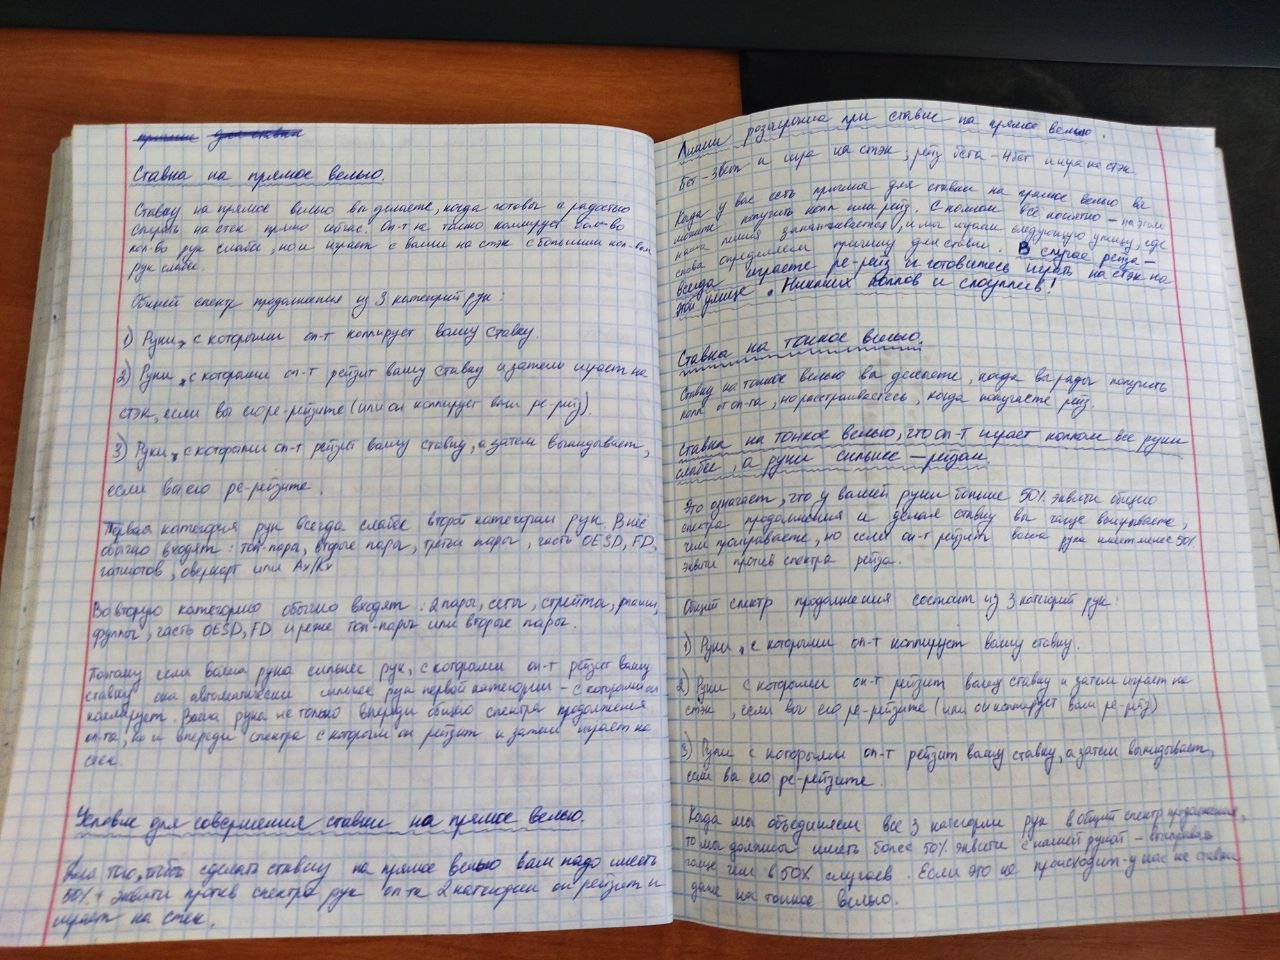 причины для ставки
Ставка на прямое велью.
Ставку на прямое велью вы делаете, когда готовы и радостно
сыграть на стек прямо сейчас. Оп-т не только коллирует бол-во
кол-во рук слабее, но и играет с вами на стэк с большим кол-вом
рук слабее.
Общий спектр продолжения из 3 категорий рук:
1) Руки, с которыми оп-т коллирует вашу ставку.
2) Руки, с которыми оп-т рейзит вашу ставку и затем играет на
стэк, если вы его ре-рейзите (или он коллирует ваш ре-рейз).
3) Руки, с которыми оп-т рейзит вашу ставку, а затем выкидывает,
если вы его ре-рейзите.
Первая категория рук всегда слабее второй категории рук. В неё
обычно входят: топ-пары, вторые пары, третьи пары, часть OESD, FD,
гатшотов, оверкарт или Ax/Kx
Во вторую категорию обычно входят: 2 пары, сеты, стрейты, флаши,
фуллы, часть OESD, FD и реже топ-пары или вторые пары.
Поэтому если ваша рука сильнее рук, с которыми оп-т рейзит вашу
ставку она автоматически сильнее рук первой категории – с которыми он
коллирует. Ваша рука не только впереди общего спектра продолжения
оп-та, но и впереди спектра с которым он рейзит и затем играет на
стек.
Условие для совершения ставки на прямое велью.
Для того, чтобы сделать ставку на прямое велью вам надо иметь
50%+ эквити против спектра рук оп-та 2 категории он рейзит и
играет на стек.
Линии розыгрыша при ставке на прямое велью.
Бет-3бет и игра на стэк; рейз бета-4бет и игра на стэк
Когда у вас есть причина для ставки на прямое велью вы
можете получить колл или рейз. С коллом всё понятно – на этом
наша линия заканчивается, и мы играем следующую улицу, где
снова определяем причину для ставки. В случае рейза –
всегда играете ре-рейз и готовитесь играть на стэк на
этой улице. Никаких коллов и слоуплеев!
Ставка на тонкое велью.
Ставку на тонкое велью вы делаете, когда вы рады получить
колл от оп-та, но расстраиваетесь, когда получаете рейз.
Ставка на тонкое велью, что оп-т играет коллом все руки
слабее, а руки сильнее – рейзом.
Это означает, что у вашей руки больше 50% эквити общего
спектра продолжения и делая ставку вы чаще выигрываете,
чем проигрываете, но если оп-т рейзит ваша рука имеет менее 50%
эквити против спектра рейза.
Общий спектр продолжения состоит из 3 категорий рук:
1) Руки, с которыми оп-т коллирует вашу ставку.
2) Руки с которыми оп-т рейзит вашу ставку и затем играет на
стэк, если вы его ре-рейзите (или он коллирует ваш ре-рейз)
3) Руки с которыми оп-т рейзит вашу ставку, а затем выкидывает,
если вы его ре-рейзите.
Когда мы объединяем все 3 категории рук в общий спектр продолжения,
то мы должны иметь более 50% эквити с нашей рукой – выигрывать
чаще чем в 50% случаев. Если это не происходит – у нас не ставка
даже на тонкое велью.